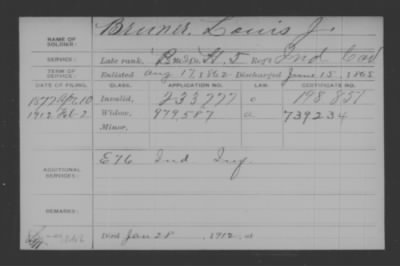 NAME OF SOLDIER: Bruner, Louis J.
SERVICE: Late rank, Pri. Co. H, 5 Reg't Ind Cav
TERM OF SERVICE: Enlisted Aug 17, 1862 Discharged June 15, 1865
DATE OF FILING. CLASS. APPLICATION NO. LAW. CERTIFICATE NO.
1877 Apr. 10 Invalid, 233,777 198.851
1912 Feb-2 Widow, 979,587 a 739234
Minor,
ADDITIONAL SERVICES: E 76 Ind Inf.
REMARKS:
Died Jan 28, 1912, at